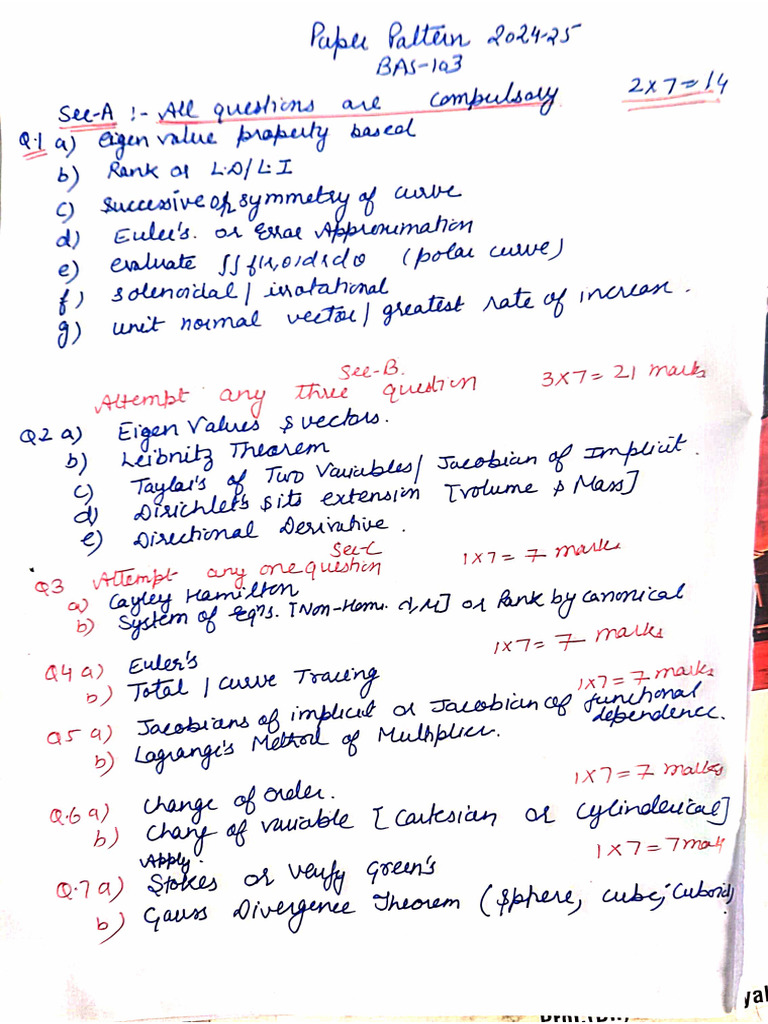 Paper Pattern 2024-25
BAS-103
Sec-A :- All questions are compulsory 2x7=14
Q.1 a) Eigen value property based
b) Rank or L.D/L.I
c) Successive or symmetry of curve
d) Euler's. or Error Approximation
e) evaluate ∫∫f(r,θ)drdθ (polar curve)
f) solenoidal / irrotational
g) unit normal vector / greatest rate of increase.
Sec-B.
Attempt any three question 3x7=21 marks
Q2 a) Eigen Values & vectors.
b) Leibnitz Theorem
c) Taylor's of Two Variables / Jacobian of Implicit.
d) Dirichlet's & its extension [volume & Mass]
e) Directional Derivative.
Sec-C 1x7=7 marks
Q3 Attempt any one question
a) Cayley Hamilton
b) System of Eqns. [Non-Hom. λ,μ] or Rank by canonical
1x7=7 marks
Q4 a) Euler's
b) Total / Curve Tracing
1x7=7 marks
Q5 a) Jacobians of implicit or Jacobian of functional dependence.
b) Lagrange's Method of Multiplier.
1x7=7 marks
Q.6 a) change of order.
b) Change of variable [Cartesian or Cylinderical]
1x7=7 mark
Apply.
Q.7 a) Stokes or verify Green's
b) Gauss Divergence Theorem (sphere, cube, cuboid)